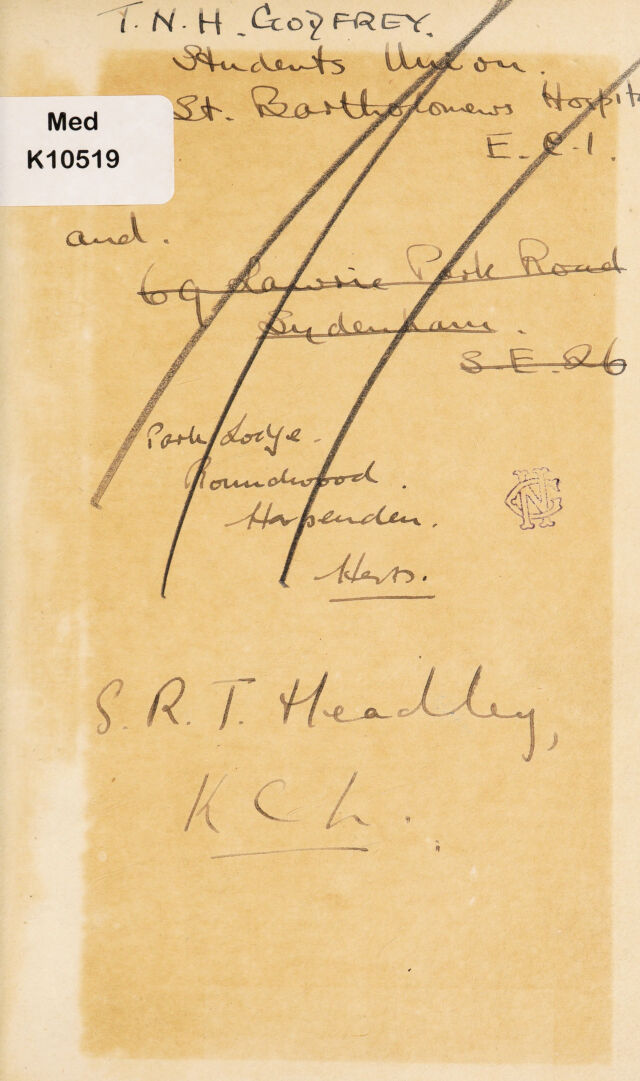 T. N. H. GODFREY.
Students Union.
St. Bartholomews Hospit
E. C. 1.
Med
K10519
and.
69 Lawrie Park Road
Sydenham.
S. E. 26
Park Lodge.
Roundwood.
Harpenden.
Herts.
S. R. T. Headley,
K C h.